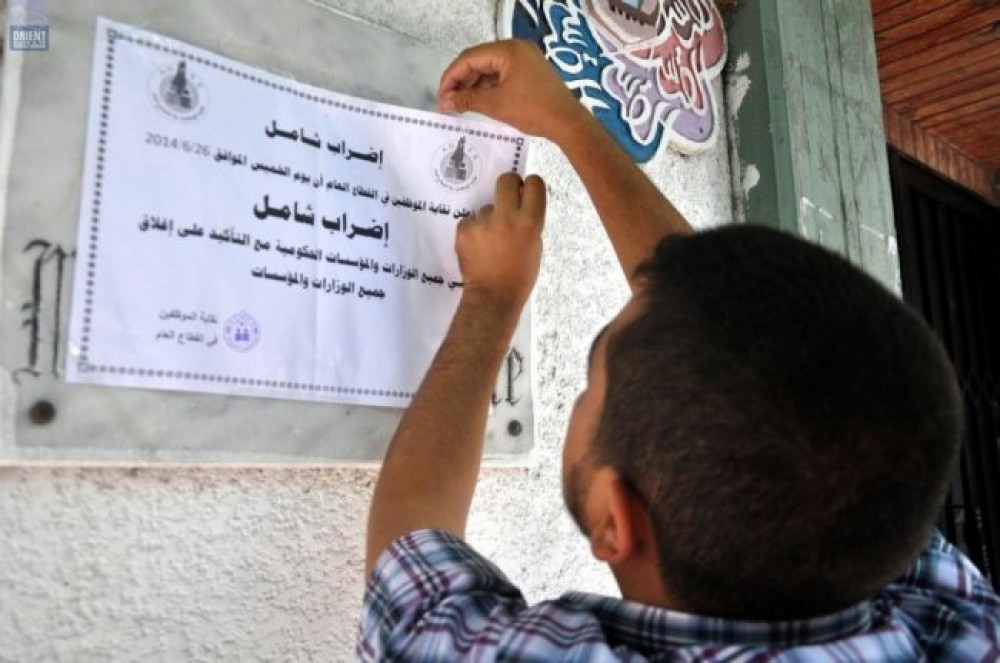 ORIENT
إضراب شامل
تعلن نقابة الموظفين في القطاع العام أن يوم الخميس الموافق 2014/6/26
إضراب شامل
في جميع الوزارات والمؤسسات الحكومية مع التأكيد على إغلاق
جميع الوزارات والمؤسسات
نقابة الموظفين
في القطاع العام